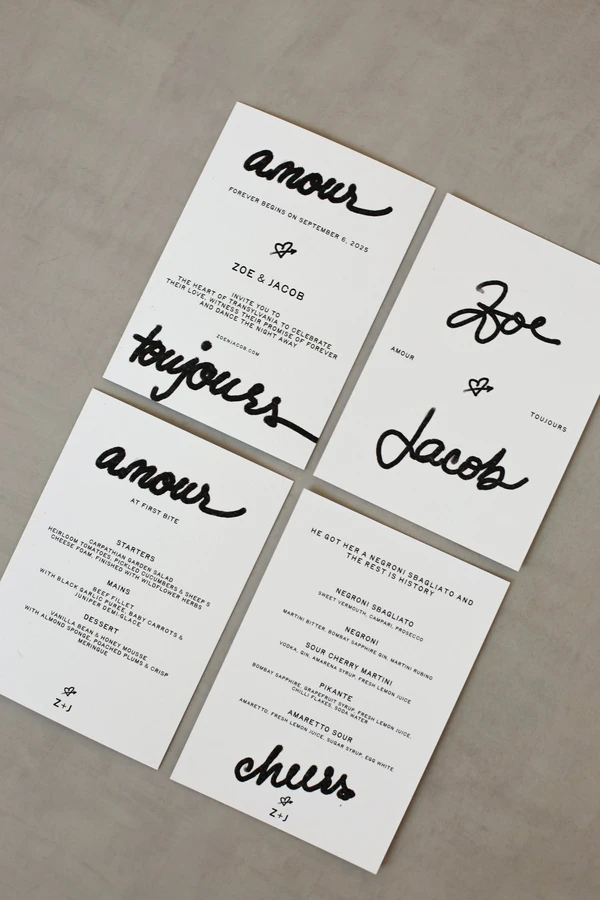 amour
FOREVER BEGINS ON SEPTEMBER 6, 2025
ZOE & JACOB
INVITE YOU TO
THE HEART OF TRANSYLVANIA TO CELEBRATE
THEIR LOVE, WITNESS THEIR PROMISE OF FOREVER
AND DANCE THE NIGHT AWAY
ZOENJACOB.COM
toujours
Zoe
AMOUR
TOUJOURS
Jacob
amour
AT FIRST BITE
STARTERS
CARPATHIAN GARDEN SALAD
HEIRLOOM TOMATOES, PICKLED CUCUMBERS & SHEEP'S
CHEESE FOAM, FINISHED WITH WILDFLOWER HERBS
MAINS
BEEF FILLET
WITH BLACK GARLIC PUREE, BABY CARROTS &
JUNIPER DEMI-GLACE
DESSERT
VANILLA BEAN & HONEY MOUSSE
WITH ALMOND SPONGE, POACHED PLUMS & CRISP
MERINGUE
Z+J
HE GOT HER A NEGRONI SBAGLIATO AND
THE REST IS HISTORY
NEGRONI SBAGLIATO
SWEET VERMOUTH, CAMPARI, PROSECCO
NEGRONI
MARTINI BITTER, BOMBAY SAPPHIRE GIN, MARTINI RUBINO
SOUR CHERRY MARTINI
VODKA, GIN, AMARENA SYRUP, FRESH LEMON JUICE
PIKANTE
BOMBAY SAPPHIRE, GRAPEFRUIT SYRUP, FRESH LEMON JUICE,
CHILLI FLAKES, SODA WATER
AMARETTO SOUR
AMARETTO, FRESH LEMON JUICE, SUGAR SYRUP, EGG WHITE
cheers
Z+J